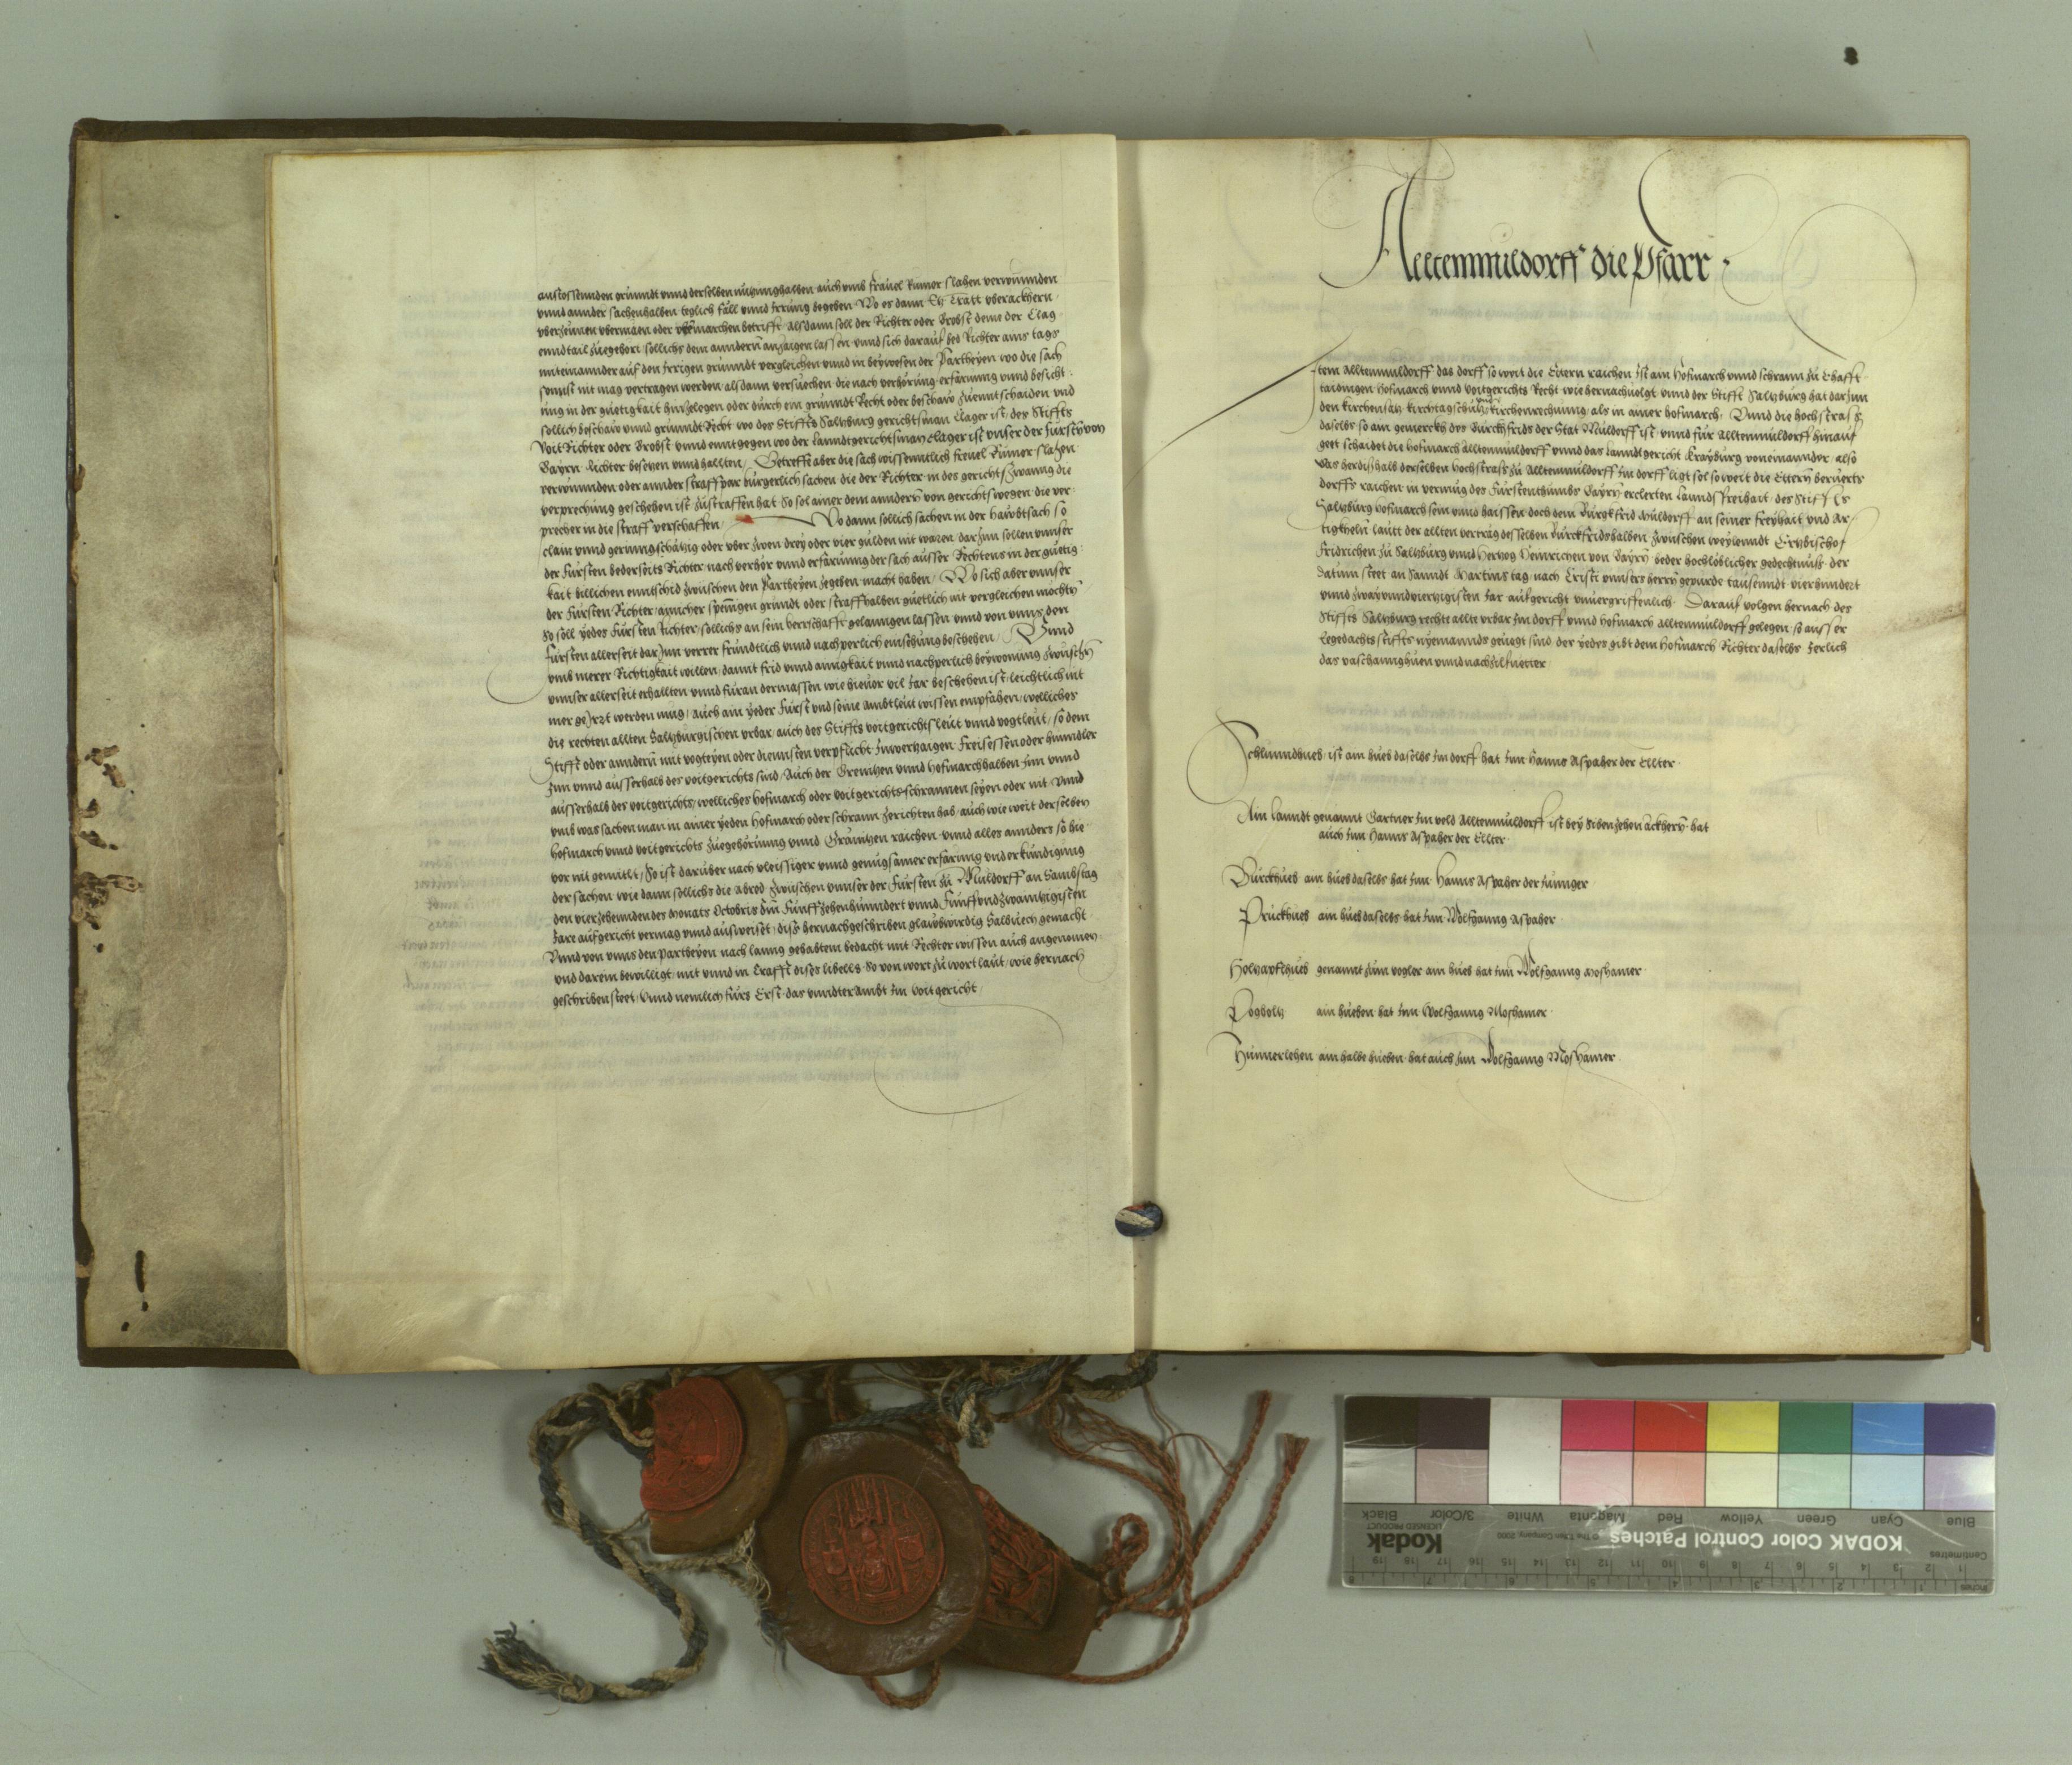 anstossennden grundt vnnd derselben nutzung halben auch vmb fräuel Rumor slahen verwunnden
vnnd annder sachenhalben teglich fäll vnnd Irrung begeben Wo es dann Etz Tratt vberackhern
vberzeinen vbermaen oder vermarchen betrifft Alsdann soll der Richter oder Brobst deme der Clag
enndtail zuegehört sollichs dem anndern anzaigen lassen vnnd sich darauf bed Richter ains tags
miteinannder auf den Irrigen grunndt vergleichen vnnd in beywesen der Partheyen wo die sach
sonnst nit mag vertragen werden alsdann versuechen die nach verhörung erfarung vnnd besicht
ung in der guetigkait hinzelegen oder durch ein grunndt Recht oder beschaw zuenntschaiden vnd
sollich beschaw vnnd grunndt Recht wo des Stiffts Saltzburg gerichtsman Clager ist des Stiffts
Voit Richter oder Brobst vnnd enntgegen wo der Lanndtgerichtsman Clager ist vnser der Fursten von
Bayrn Richter besetzen vnnd hallten Betreffe aber die sach wissenntlich freuel Rumor slahen
verwunnden oder annder straffpar burgerlich sachen die der Richter in des gerichtzwanng die
verprechung geschehen ist zustraffen hat So sol ainer dem anndern von gerichts wegen die ver
precher in die straff verschaffen Wo dann sollich sachen in der haubtsach so
clain vnnd geringschätzig oder vber zwen drey oder vier gulden nit waren darzun sollen vnnser
der Fursten bederseits Richter nach verhör vnnd erfarung der sach ausser Rechtens in der guetig
kait billichen enntschid zwischen den Partheyen zegeben macht haben Wo sich aber vnnser
der Fursten Richter ainicher spennigen grundt oder straff halben guetlich nit vergleichen möchten
So soll yedes Fursten Richter sollichs an sein herrschafft gelanngen lassen vnnd von vnns den
Fursten allerseit darInn verrer frundtlich vnnd nachperlich einsehung beschehen Vnnd
vmb merer Richtigkait willen damit frid vnnd ainigkait vnnd nachperlich beywonung zwischen
vnnser allerseit erhallten vnnd füran dermassen wie hieuor vil Jar beschehen ist leichtlich nit
mer geIrrt werden mug auch ain yeder Fürst vnd seine Ambtleüt wissen empfahen welliches
die rechten allten Saltzburgischen vrbar auch des Stiffts voitgerichts leüt vnnd vogtleüt so dem
Stifft oder anndern mit vogteyen oder diennsten verpflicht Inwerzaigen Freisessen oder hinndler
Inn vnnd ausserhalb des voitgerichts sind Auch der Grenitzen vnnd hofmarchhalben Inn vnnd
ausserhalb des voitgerichts welliches hofmarch oder voitgerichts schrannen seyen oder nit vnnd
vmb was sachen man in ainer yeden hofmarch oder schrann zerichten hab auch wie weit derselben
hofmarch vnnd voitgerichts zuegehörung vnnd Gränitzen raichen vnnd alles annders so hie
vor nit gemellt So ist darüber nach vleissiger vnnd genugsamer erfarung vnd erkundigung
der sachen wie dann sollichs die abred zwischen vnnser der Fursten zu Muldorff an Sambstag
den vierzehennden des Monats Octobris Im Funffzehenhundert vnnd Funffvndzwaintzigisten
Jare aufgericht vermag vnnd ausweiset diss hernachgeschriben glaubwirdig Salbuech gemacht
Vnnd von vnns den Partheyen nach lanng gehabtem bedacht mit Rechter wissen auch angenomen
vnd darein bewilligt mit vnnd in Crafft dises libells So von wort zu wort laut wie hernach
geschriben steet Vnnd nemlich fürs Erst das vnndter Ambt Im voitgericht
Alltenmuldorff die Pfarr
Item Alltenmuldorff das dorff so weit die Etern raichen Ist ain hofmarch vnnd schrann zu Ehafft
taidingen Hofmarch vnnd voitgerichts Recht wie hernachuolgt vnnd der Stifft Saltzburg hat darInn
den kirchensatz kirchtagschutz kirchenrechnung als in ainer hofmarch Vnnd die hochstrass
daselbs so ain gemerckh des Burckfrids der Stat Muldorff ist vnnd für Alltenmuldorff hinauf
geet schaidet die hofmarch Alltenmuldorff vnnd das Lanndtgericht Krayburg voneinannder also
das herdishalb derselben hochstrass zu Alltenmuldorff Im dorff ligt sol so weit die Ettern berüerts
dorffs raichen in vermug des Fürstenthumbs Bayrn erclerten Lannds freihait des Stiffts
Saltzburg hofmarch sein vnnd haissen doch dem Burgkfrid Muldorff an seiner freyhait vnd Ar
tigkheln lautt der allten verträg desselben Burckfridshalben zwischen weylenndt Ertzbischof
Fridrichen zu Saltzburg vnnd Hertzog Heinrichen von Bayrn beder hochloblicher gedechtnuss der
Datum steet an Sannd Martins tag nach Cristi vnnsers herrn gepurde tausenndt vierhundert
vnnd zwayvnndvierzigisten Jar aufgericht vnuergriffenlich Darauf volgen hernach des
Stiffts Saltzburg rechte allte vrbar Im dorff vnnd hofmarch Alltenmuldorff gelegen so ausser
Legedachts stiffts nyemannds geuogt sind der yedes gibt dem hofmarch Richter daselbs Jerlich
das vaschannghuen vnnd nachtzilfueter
Schlunndhueb ist ain hueb daselbs Im dorff hat Inn Hanns Aspaher der Ellter
Ain Lanndt genannt Gartner Im veld Alltenmuldorff ist bey Sibenzehen äckhern hat
auch Inn Hanns Aspaher der Ellter
Burckhueb ain hueb daselbs hat Inn Hanns Aspaher der Junnger
Pruckhueb ain hueb daselbs hat Inn Wolfganng Aspaher
Holtzapflhueb genannt zum vogler ain hueb hat Inn Wolfganng Moshamer
Pogholtz ain hueben hat Inn Wolfganng Moshamer
Hunnerlehen ain halbe hueben hat auch Inn Wolfganng Moshamer
Blue Cyan Green Yellow Red Magenta White 3/Color Black
KODAK Color Control Patches © The Tiffen Company, 2000 Kodak LICENSED PRODUCT
Centimetres 1 2 3 4 5 6 7 8 9 10 11 12 13 14 15 16 17 18 19
Inches 1 2 3 4 5 6 7 8